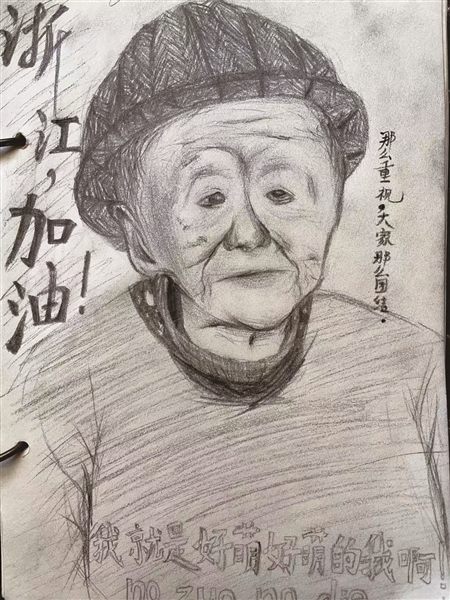 浙江,加油!
那么重视。大家那么团结。
我就是好萌好萌的我啊!
no zuo no die